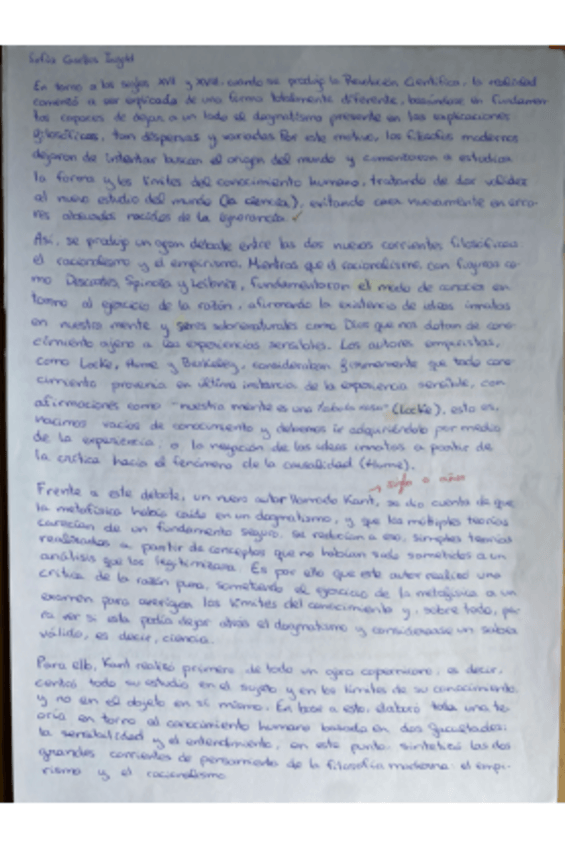 Sofía
En torno a los siglos XVII y XVIII, cuando se produjo la Revolución Científica, la realidad
comenzó a ser explicada de una forma totalmente diferente, basándose en fundamen-
tos capaces de dejar a un lado el dogmatismo presente en las explicaciones
filosóficas, tan dispersas y variadas. Por este motivo, los filósofos modernos
dejaron de intentar buscar el origen del mundo y comenzaron a estudiar
la forma y los límites del conocimiento humano, tratando de dar validez
al nuevo estudio del mundo (la ciencia), evitando caer nuevamente en erro-
res nacidos de la ignorancia. ✓
Así, se produjo un gran debate entre las dos nuevas corrientes filosóficas:
el racionalismo y el empirismo. Mientras que el racionalismo, con figuras co-
mo Descartes, Spinoza y Leibniz, fundamentaron el modo de conocer en
torno al ejercicio de la razón, afirmando la existencia de ideas innatas
en nuestra mente y seres sobrenaturales como Dios que nos dotan de cono-
cimiento ajeno a las experiencias sensibles. Los autores empiristas,
como Locke, Hume y Berkeley, consideraban firmemente que todo cono-
cimiento provenía en última instancia de la experiencia sensible, con
afirmaciones como "nuestra mente es una tabula rasa" (Locke), esto es,
nacimos vacíos de conocimiento y debemos ir adquiriéndolo por medio
de la experiencia; o la negación de las ideas innatas a partir de
la crítica hacia el fenómeno de la causalidad (Hume).
→ siglo o años
Frente a este debate, un nuevo autor llamado Kant, se dio cuenta de que
la metafísica había caído en un dogmatismo, y que las múltiples teorías
carecían de un fundamento seguro, se reducían a eso, simples teorías
realizadas a partir de conceptos que no habían sido sometidos a un
análisis que los legitimizara. Es por ello que este autor realizó una
crítica de la razón pura, sometiendo el ejercicio de la metafísica a un
examen para averiguar los límites del conocimiento y, sobre todo, pa-
ra ver si esta podía dejar atrás el dogmatismo y considerarse un saber
válido, es decir, ciencia.
Para ello, Kant realizó primero de todo un giro copernicano, es decir,
centró todo su estudio en el sujeto y en los límites de su conocimiento
y no en el objeto en sí mismo. En base a esto, elaboró toda una te-
oría en torno al conocimiento humano basada en dos facultades:
la sensibilidad y el entendimiento, en este punto, sintetizó las dos
grandes corrientes de pensamiento de la filosofía moderna: el empi-
rismo y el racionalismo